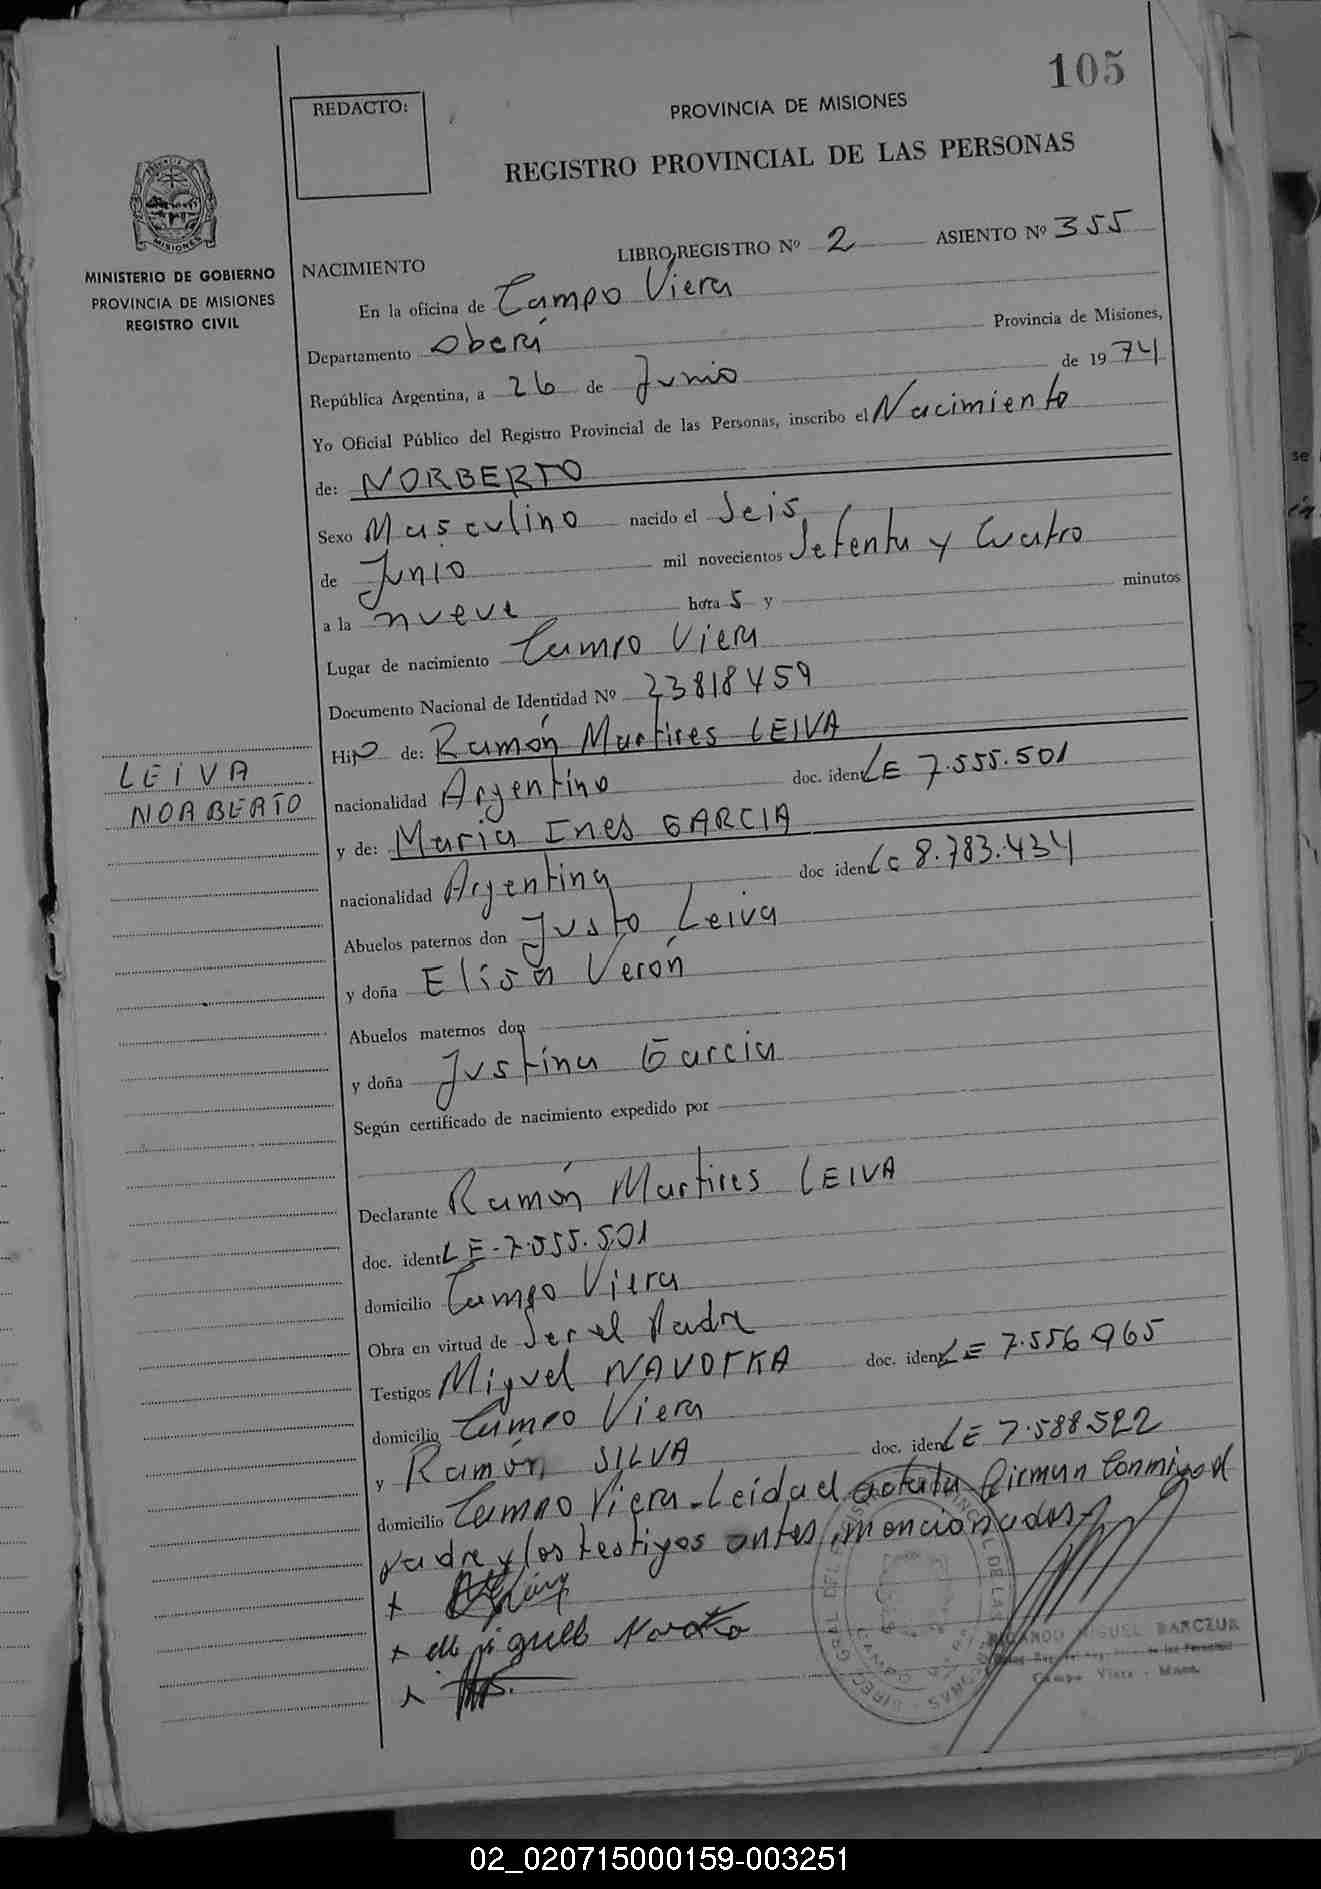 105
REDACTO:
PROVINCIA DE MISIONES
REGISTRO PROVINCIAL DE LAS PERSONAS
MISIONES
MINISTERIO DE GOBIERNO
PROVINCIA DE MISIONES
REGISTRO CIVIL
NACIMIENTO LIBRO REGISTRO Nº 2 ASIENTO Nº 355
En la oficina de Campo Viera
Departamento Oberá Provincia de Misiones,
República Argentina, a 26 de Junio de 1974
Yo Oficial Público del Registro Provincial de las Personas, inscribo el Nacimiento
de: NORBERTO
Sexo Masculino nacido el Seis
de Junio mil novecientos Setenta y Cuatro
a la nueve hora s y minutos
Lugar de nacimiento Campo Viera
Documento Nacional de Identidad Nº 23818459
Hijo de: Ramón Martires LEIVA
LEIVA
NORBERTO
nacionalidad Argentino doc. iden LE 7.555.501
y de: Maria Ines GARCIA
nacionalidad Argentina doc iden LC 8.783.434
Abuelos paternos don Justo Leiva
y doña Elisa Verón
Abuelos maternos don
y doña Justina Garcia
Según certificado de nacimiento expedido por
Declarante Ramón Martires LEIVA
doc. ident LE-7.555.501
domicilio Campo Viera
Obra en virtud de Ser el Padre
Testigos Miguel NAVOTKA doc. iden LE 7.556 965
domicilio Campo Viera
y Ramón SILVA doc. iden LE 7.588522
domicilio Campo Viera-Leida el acta la firman Conmigo el
padre y los testigos antes mencionados-
+
+ Miguel
+
MIGUEL BARCZUK
Campo Viera - Mnes.
02_020715000159-003251